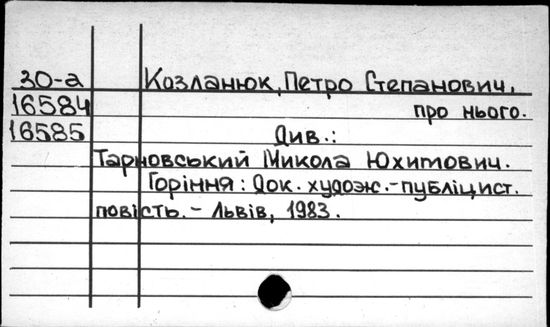 30-а Козланюк, Петро Степанович,
16584 про нього.
16585 Див.:
Тарновський Микола Юхимович.
Горіння: Док. худож.-публіцист.
повість. - Львів, 1983.